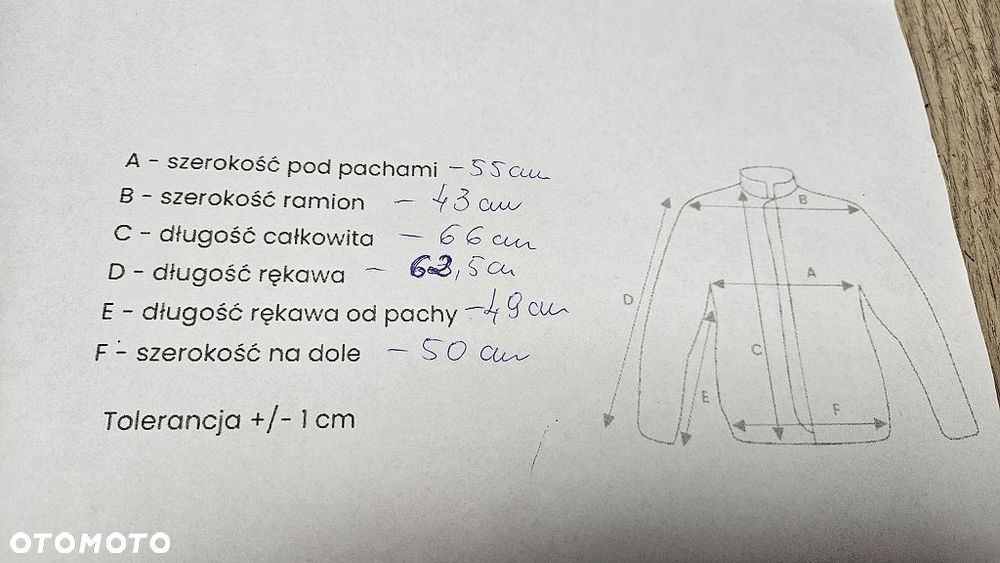 A - szerokość pod pachami - 55 cm
B - szerokość ramion - 43 cm
C - długość całkowita - 66 cm
D - długość rękawa - 62,5 cm
E - długość rękawa od pachy - 49 cm
F - szerokość na dole - 50 cm
Tolerancja +/- 1 cm
B
A
D
C
E
F
OTOMOTO